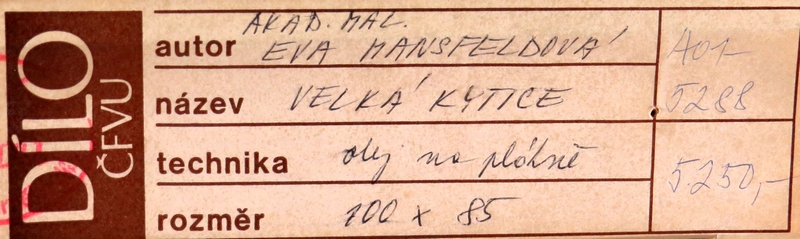 DÍLO
ČFVU
autor AKAD. MAL.
EVA MANSFELDOVÁ
název VELKÁ KYTICE
technika olej na plátně
rozměr 100 x 85
A01-
5288
5.250,-